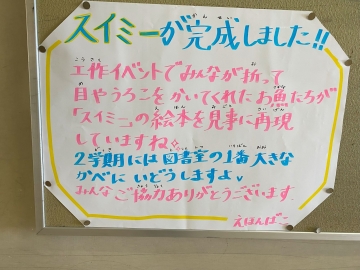 スイミーが完成しました!!
工作イベントでみんなが折って
目やうろこをかいてくれたお魚たちが
「スイミー」の絵本を見事に再現
していますね☆
2学期には図書室の1番大きな
かべにいどうしますよv
みんなご協力ありがとうございます
えほんばこ